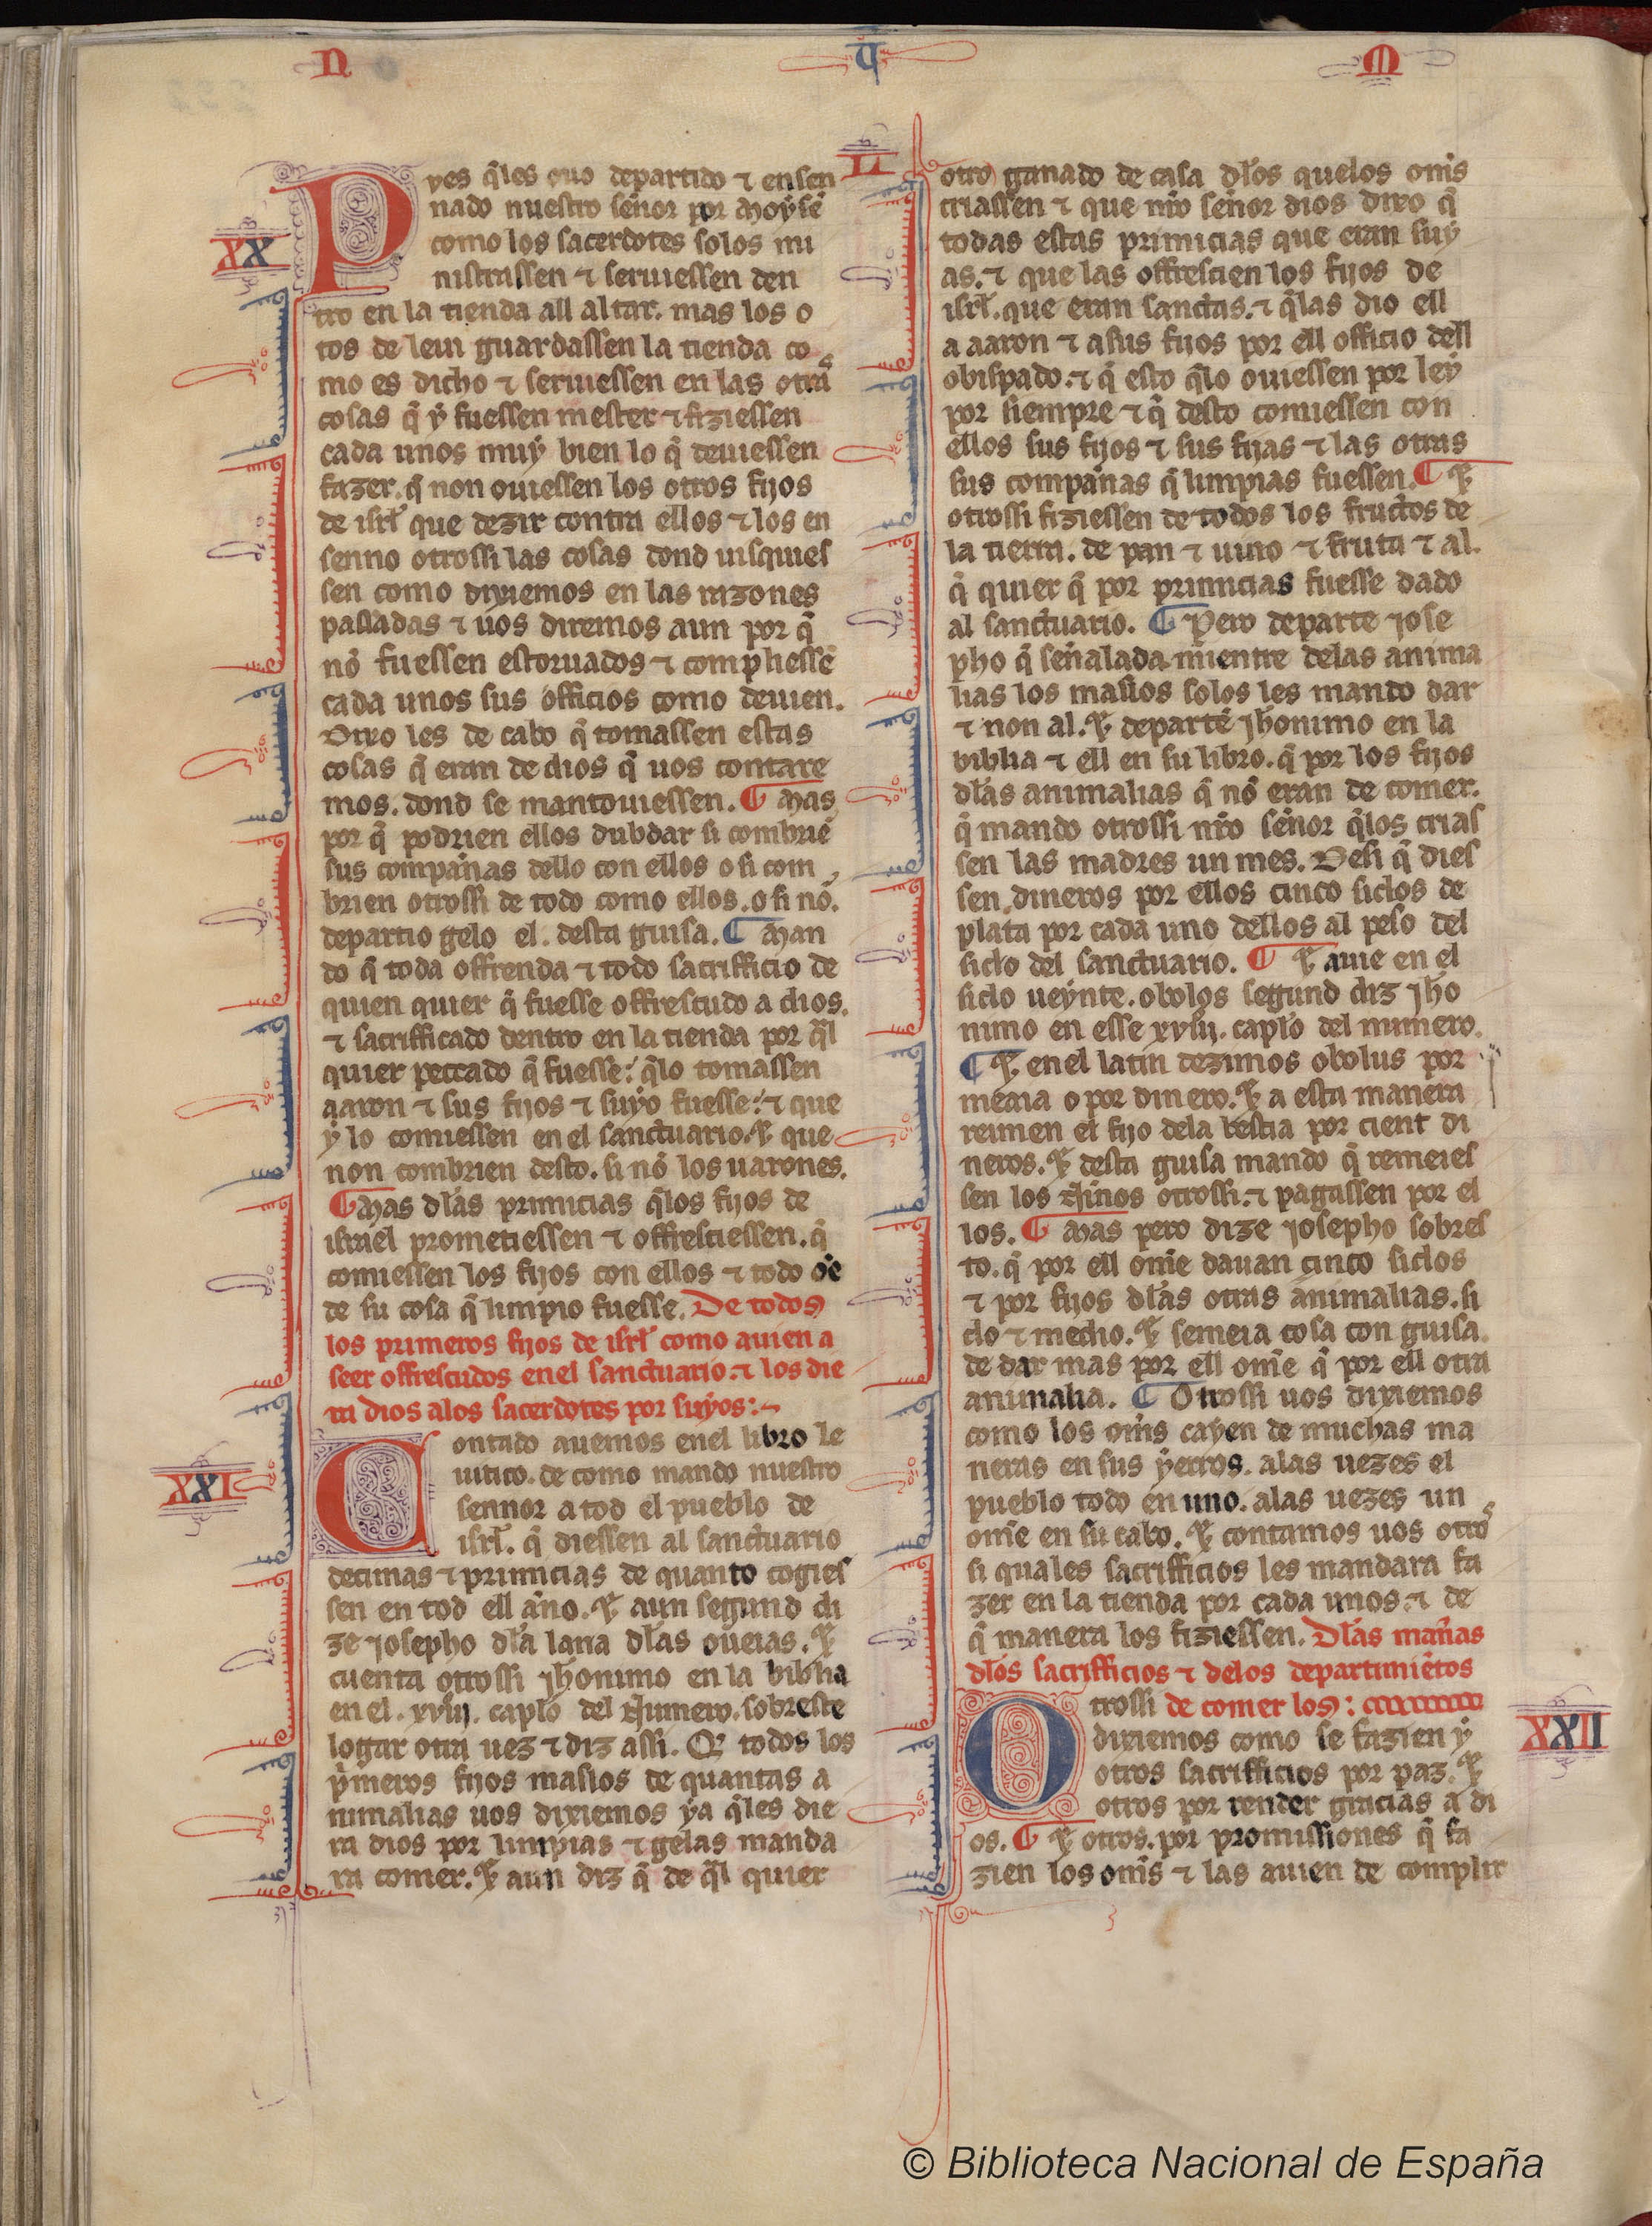 N U M
LI
XX
Pves q̃les ouo departido ⁊ ensen
nado nuestro señor por Moysē
como los sacerdotes solos mi
nistrassen ⁊ seruiessen den
tro en la tienda all altar. mas los o
tros de leui guardassen la tienda co
mo es dicho ⁊ seruiessen en las otras
cosas q̃ ẏ fuessen mester ⁊ fiziessen
cada unos muẏ bien lo q̃ deuiessen
fazer. q̃ non ouiessen los otros fijos
de isrł que dezir contra ellos ⁊ los en
senno otrossi las cosas dond uisquies
sen como dixiemos en las razones
passadas ⁊ uos diremos aun por q̃
nō fuessen estoruados ⁊ compliessē
cada unos sus officios como deuien.
Dixo les de cabo q̃ tomassen estas
cosas q̃ eran de dios q̃ uos contare
mos. dond se mantouiessen. ¶ Mas
por q̃ podrien ellos dubdar si combriē
sus compañas dello con ellos o si com
brien otrossi de todo como ellos. o si nō.
departio gelo el. desta guisa. ¶ Man
do q̃ toda offrenda ⁊ todo sacrifficio de
quien quier q̃ fuesse offrescudo a dios.
⁊ sacrifficado dentro en la tienda por q̃l
quier peccado q̃ fuesse: q̃lo tomassen
aaron ⁊ sus fijos ⁊ suyo fuesse: ⁊ que
ẏ lo comiessen en el sanctuario. ⁊ que
non combrien desto. si nō los uarones.
¶ Mas dłas primicias q̃los fijos de
israel prometiessen ⁊ offresciessen. q̃
comiessen los fijos con ellos ⁊ todo oē
de su cosa q̃ limpio fuesse. De todos
los primeros fijos de isrł como auien a
seer offrescudos enel sanctuario. ⁊ los die
ra dios alos sacerdotes por suyos:~
XXI
Contado auemos enel libro le
uitico. de como mando nuestro
sennor a tod el pueblo de
isrł. q̃ diessen al sanctuario
decimas ⁊ primicias de quanto cogies
sen en tod ell año. ⁊ aun segund di
ze josepho dła lana dłas oueias. ⁊
cuenta otrossi jħonimo en la biblia
en el. xviij. capłο del Numero. sobreste
logar otra uez ⁊ diz assi. Q̃ todos los
p̃meros fijos maslos de quantas a
nimalias uos dixiemos ya q̃les die
ra dios por limpias ⁊ gelas manda
ra comer. ⁊ aun diz q̃ de q̃l quier
otro ganado de casa dłos quelos om̃s
criassen ⁊ que nr̃o señor dios dixo q̃
todas estas primicias que eran suẏ
as. ⁊ que las offrescien los fijos de
isrł. que eran sanctas. ⁊ q̃las dio ell
a aaron ⁊ asus fijos por ell officio dell
obispado. ⁊ q̃ esto q̃lo ouiessen por leẏ
por siempre ⁊ q̃ desto comiessen con
ellos sus fijos ⁊ sus fijas ⁊ las otras
sus compañas q̃ limpias fuessen. ¶ ⁊
otrossi fiziessen de todos los fructos de
la tierra. de pan ⁊ uino ⁊ fruta ⁊ al.
q̃ quier q̃ por primicias fuesse dado
al sanctuario. ¶ Pero departe jose
pho q̃ señalada mientre delas anima
lias los maslos solos les mando dar
⁊ non al. ⁊ departe jħonimo en la
biblia ⁊ ell en su libro. q̃ por los fijos
dłas animalias q̃ nō eran de comer.
q̃ mando otrossi nr̃o señor q̃los crias
sen las madres un mes. Desi q̃ dies
sen dineros por ellos cinco siclos de
plata por cada uno dellos al peso del
siclo del sanctuario. ¶ ⁊ auie en el
siclo ueẏnte. obolos segund diz jħo
nimo en esse xviij. capłο del numero.
¶ ⁊ en el latin dezimos obolus por
meaia o por dinero. ⁊ a esta manera
reimen el fijo dela bestia por cient di
neros. ⁊ desta guisa mando q̃ remeies
sen los niños otrossi. ⁊ pagassen por el
los. ¶ Mas pero dize josepho sobres
to. q̃ por ell om̃e dauan cinco siclos
⁊ por fijos dłas otras animalias. si
clo ⁊ medio. ⁊ semeia cosa con guisa.
de dar mas por ell om̃e q̃ por ell otra
animalia. ¶ Otrossi uos dixiemos
como los om̃s cayen de muchas ma
neras en sus ẏerros. alas uezes el
pueblo todo en uno. alas uezes un
om̃e en su cabo. ⁊ contamos uos otro
si quales sacrifficios les mandara fa
zer en la tienda por cada unos. ⁊ de
q̃ manera los fiziessen. Dłas mañas
dłos sacrifficios ⁊ delos departimiētos
de comer los:
XXII
Otrossi
dixiemos como se fazien ẏ
otros sacrifficios por paz. ⁊
otros por render gracias a di
os. ¶ ⁊ otros. por promissiones q̃ fa
zien los om̃s ⁊ las auien de complir
© Biblioteca Nacional de España